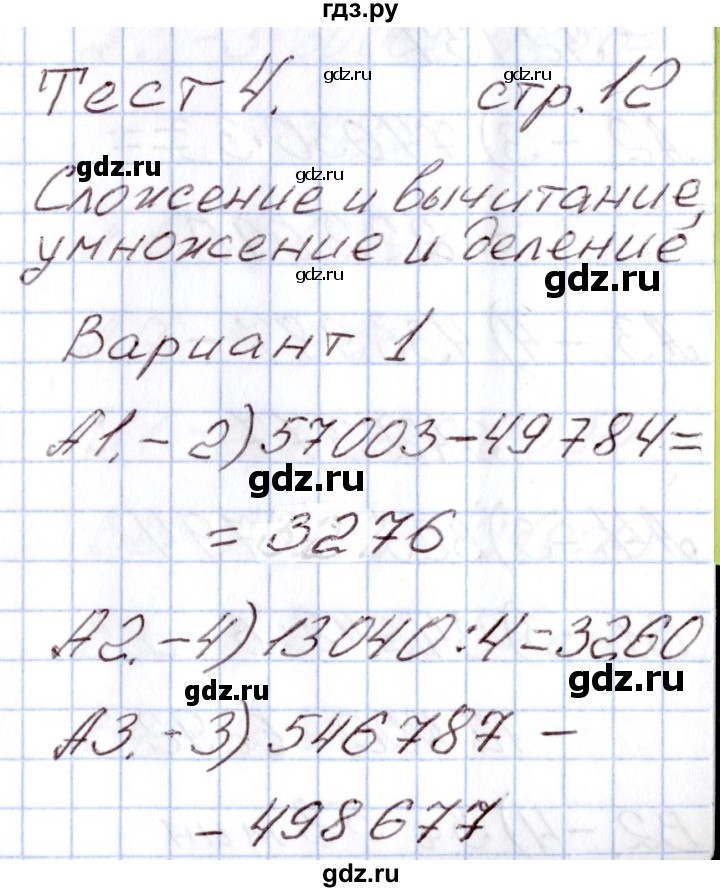 гдз.ру
Тест 4. стр. 12
gdz.ru gdz.ru
gdz.ru gdz.ru
Сложение и вычитание,
умножение и деление
gdz.ru gdz.ru
Вариант 1
А1. - 2) 57003 - 49784 =
gdz.ru gdz.ru
= 3276
А2. - 4) 13040 : 4 = 3260
gdz.ru gdz.ru
А3. - 3) 546787 -
- 498677
gdz.ru